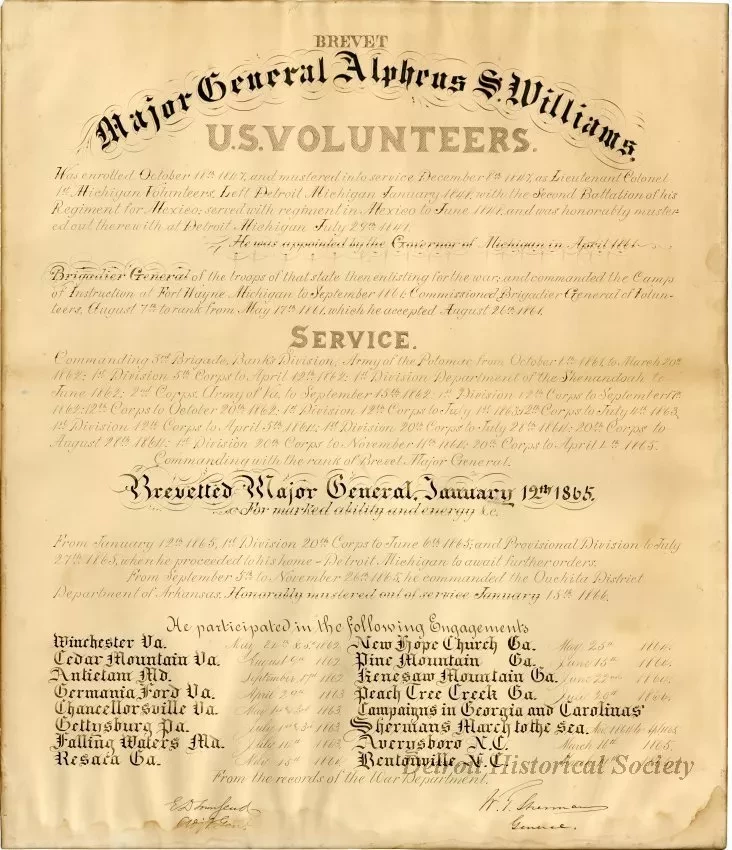 BREVET
Major General Alpheus S. Williams,
U.S. VOLUNTEERS.
Was enrolled October 18th 1847, and mustered into service December 8th 1847, as Lieutenant Colonel
1st Michigan Volunteers, Left Detroit Michigan January 1848, with the Second Battalion of his
Regiment for Mexico; served with regiment in Mexico to June 1848, and was honorably muster-
ed out therewith at Detroit Michigan July 28th 1848.
He was appointed by the Governor of Michigan in April 1861
Brigadier General of the troops of that state then enlisting for the war; and commanded the Camp
of Instruction at Fort Wayne, Michigan to September 1861; Commissioned Brigadier General of Volun-
teers, August 7th to rank from May 17th 1861, which he accepted August 26th 1861.
SERVICE.
Commanding 3rd Brigade, Banks Division, Army of the Potomac from October 1861, to March 20th
1862; 1st Division 5th Corps to April 12th 1862; 1st Division Department of the Shenandoah to
June 1862; 2nd Corps Army of Va. to September 1862; 1st Division 12th Corps to September
1862; 12th Corps to October 20th 1862; 1st Division 12th Corps to July 1st 1863; 12th Corps to July 1863,
1st Division 12th Corps to April 1864; 1st Division 20th Corps to July 28th 1864; 20th Corps to
August 1864; 1st Division 20th Corps to November 11th 1864; 20th Corps to April 1865.
Commanding with the rank of Brevet Major General.
Brevetted Major General, January 12th 1865.
For marked ability and energy &c.
From January 12th 1865, 1st Division 20th Corps to June 6th 1865; and Provisional Division to July
27th 1865, when he proceeded to his home - Detroit Michigan to await further orders.
From September 5th to November 26th 1865, he commanded the Ouchita District
Department of Arkansas. Honorably mustered out of service January 15th 1866.
He participated in the following Engagements
Winchester Va. May 1862 New Hope Church Ga. May 25th 1864.
Cedar Mountain Va. August 9th 1862 Pine Mountain Ga. June 15th 1864.
Antietam Md. September 17th 1862 Kenesaw Mountain Ga. June 22nd 1864.
Germania Ford Va. April 29th 1863 Peach Tree Creek Ga. 1864.
Chancellorsville Va. 1863 Campaigns in Georgia and Carolinas'
Gettysburg Pa. July 1863 Shermans March to the Sea.
Falling Waters Md. July 1863 Averysboro N.C. March 16th 1865.
Resaca Ga. May 15th 1864 Bentonville N.C.
From the records of the War Department.
Detroit Historical Society
E D Townsend W. T. Sherman
General.